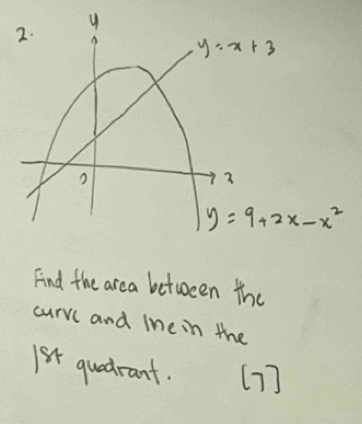 2.
y
y = x + 3
0
x
y = 9 + 2x - x²
Find the area between the
curve and line in the
1st quadrant. [7]